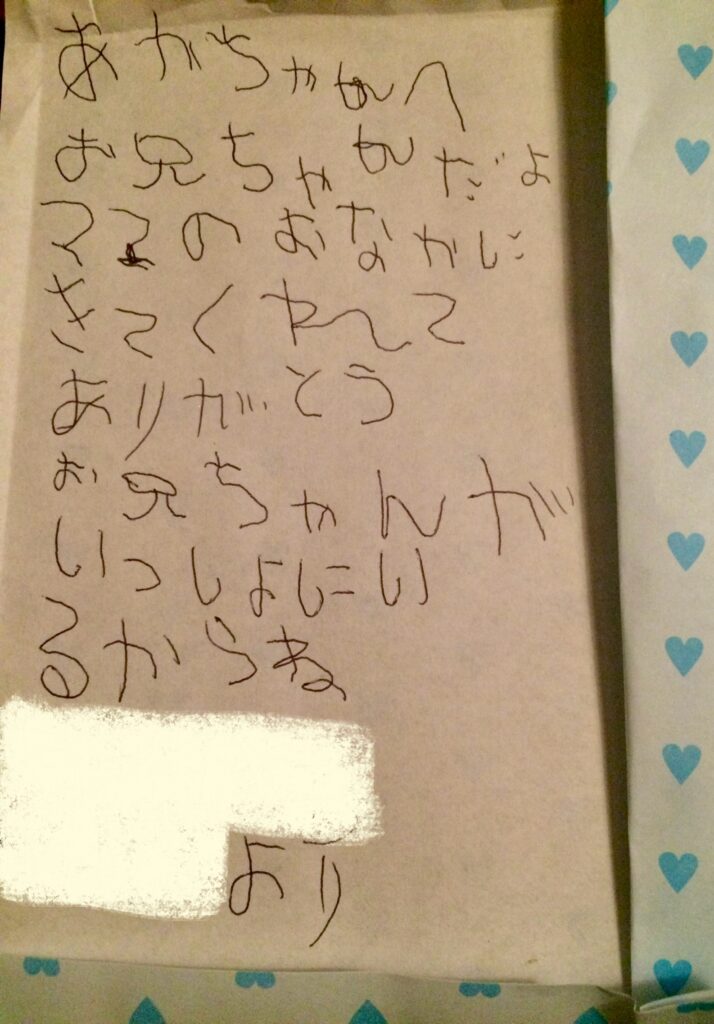 あかちゃんへ
お兄ちゃんだよ
ママのおなかに
きてくれて
ありがとう
お兄ちゃんが
いっしょにい
るからね
より